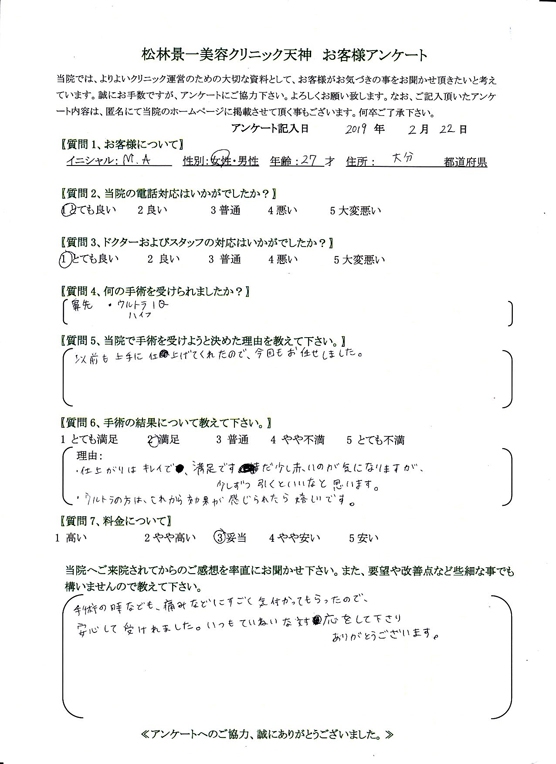 松林景一美容クリニック天神　お客様アンケート
当院では、よりよいクリニック運営のための大切な資料として、お客様がお気づきの事をお聞かせ頂きたいと考え
ています。誠にお手数ですが、アンケートにご協力下さい。よろしくお願い致します。なお、ご記入頂いたアンケ
ート内容は、匿名にて当院のホームページに掲載させて頂く事もございます。何卒ご了承下さい。
アンケート記入日　2019 年　2 月 22 日
〖質問1、お客様について〗
イニシャル: M.A　性別:女性・男性　年齢:27 才　住所:　大分　都道府県
〖質問2、当院の電話対応はいかがでしたか？〗
1 とても良い　2 良い　3 普通　4 悪い　5 大変悪い
〖質問3、ドクターおよびスタッフの対応はいかがでしたか？〗
1 とても良い　2 良い　3 普通　4 悪い　5 大変悪い
〖質問4、何の手術を受けられましたか？〗
鼻先　・ウルトラ
ハイフ
〖質問5、当院で手術を受けようと決めた理由を教えて下さい。〗
以前も上手に仕上げてくれたので、今回もお任せしました。
〖質問6、手術の結果について教えて下さい。〗
1 とても満足　2 満足　3 普通　4 やや不満　5 とても不満
理由:
・仕上がりはキレイで、満足です まだ少し赤いのが気になりますが、
少しずつ引くといいなと思います。
・ウルトラの方は、これから効果が感じられたら嬉しいです。
〖質問7、料金について〗
1 高い　2 やや高い　3 妥当　4 やや安い　5 安い
当院へご来院されてからのご感想を率直にお聞かせ下さい。また、要望や改善点など些細な事でも
構いませんので教えて下さい。
手術の時なども、痛みなどにすごく気付かってもらったので、
安心して受けれました。いつもていねいな対応をして下さり
ありがとうございます。
≪アンケートへのご協力、誠にありがとうございました。≫